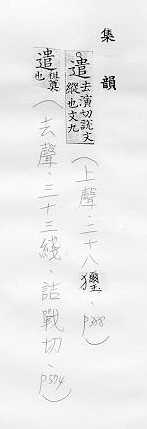 集韻
○遣去演切說文縱也文九(上聲.二十八獮.P388)
遣祖奠也(去聲.三十三綫.詰戰切.P574)